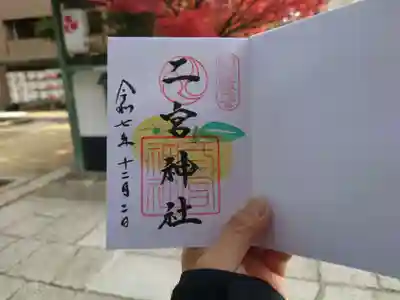 二宮神社
令和七年十二月二日